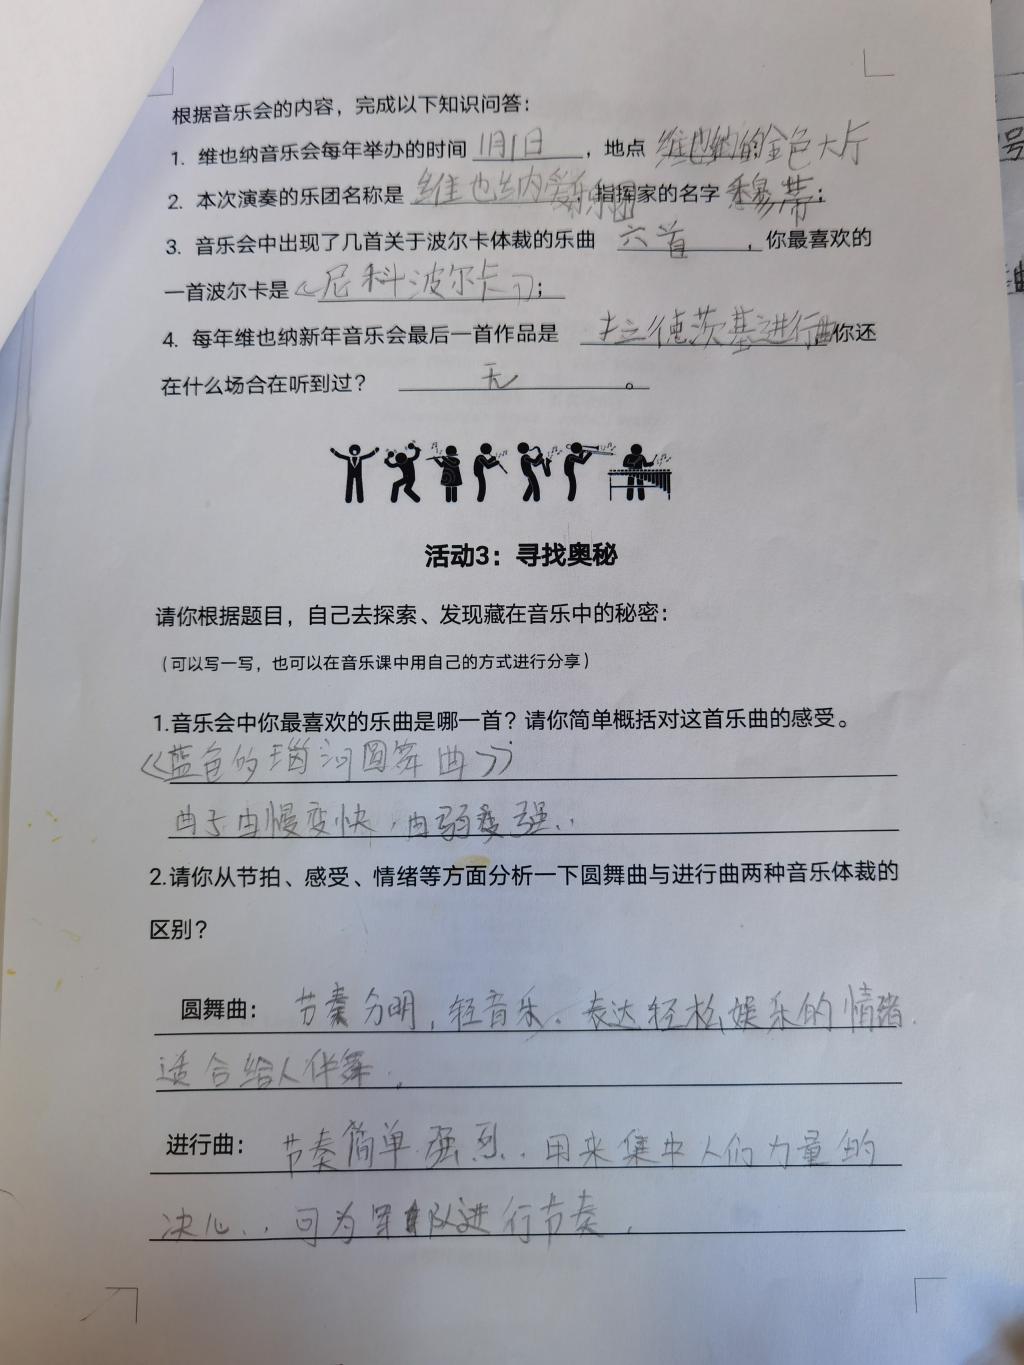 根据音乐会的内容，完成以下知识问答：
1. 维也纳音乐会每年举办的时间 1月1日 ，地点 维也纳的金色大厅
2. 本次演奏的乐团名称是 维也纳爱乐乐团，指挥家的名字 穆蒂；
3. 音乐会中出现了几首关于波尔卡体裁的乐曲 六首 ，你最喜欢的
一首波尔卡是《尼科波尔卡》；
4. 每年维也纳新年音乐会最后一首作品是 拉德茨基进行曲你还
在什么场合在听到过？ 无 。
活动3：寻找奥秘
请你根据题目，自己去探索、发现藏在音乐中的秘密：
（可以写一写，也可以在音乐课中用自己的方式进行分享）
1.音乐会中你最喜欢的乐曲是哪一首？请你简单概括对这首乐曲的感受。
《蓝色的瑙河圆舞曲》
曲子由慢变快，由弱变强..
2.请你从节拍、感受、情绪等方面分析一下圆舞曲与进行曲两种音乐体裁的
区别？
圆舞曲： 节奏分明，轻音乐。表达轻松娱乐的情绪.
适合给人伴舞.
进行曲： 节奏简单强烈..用来集中人们力量的
决心..可为军队进行节奏.
号
曲